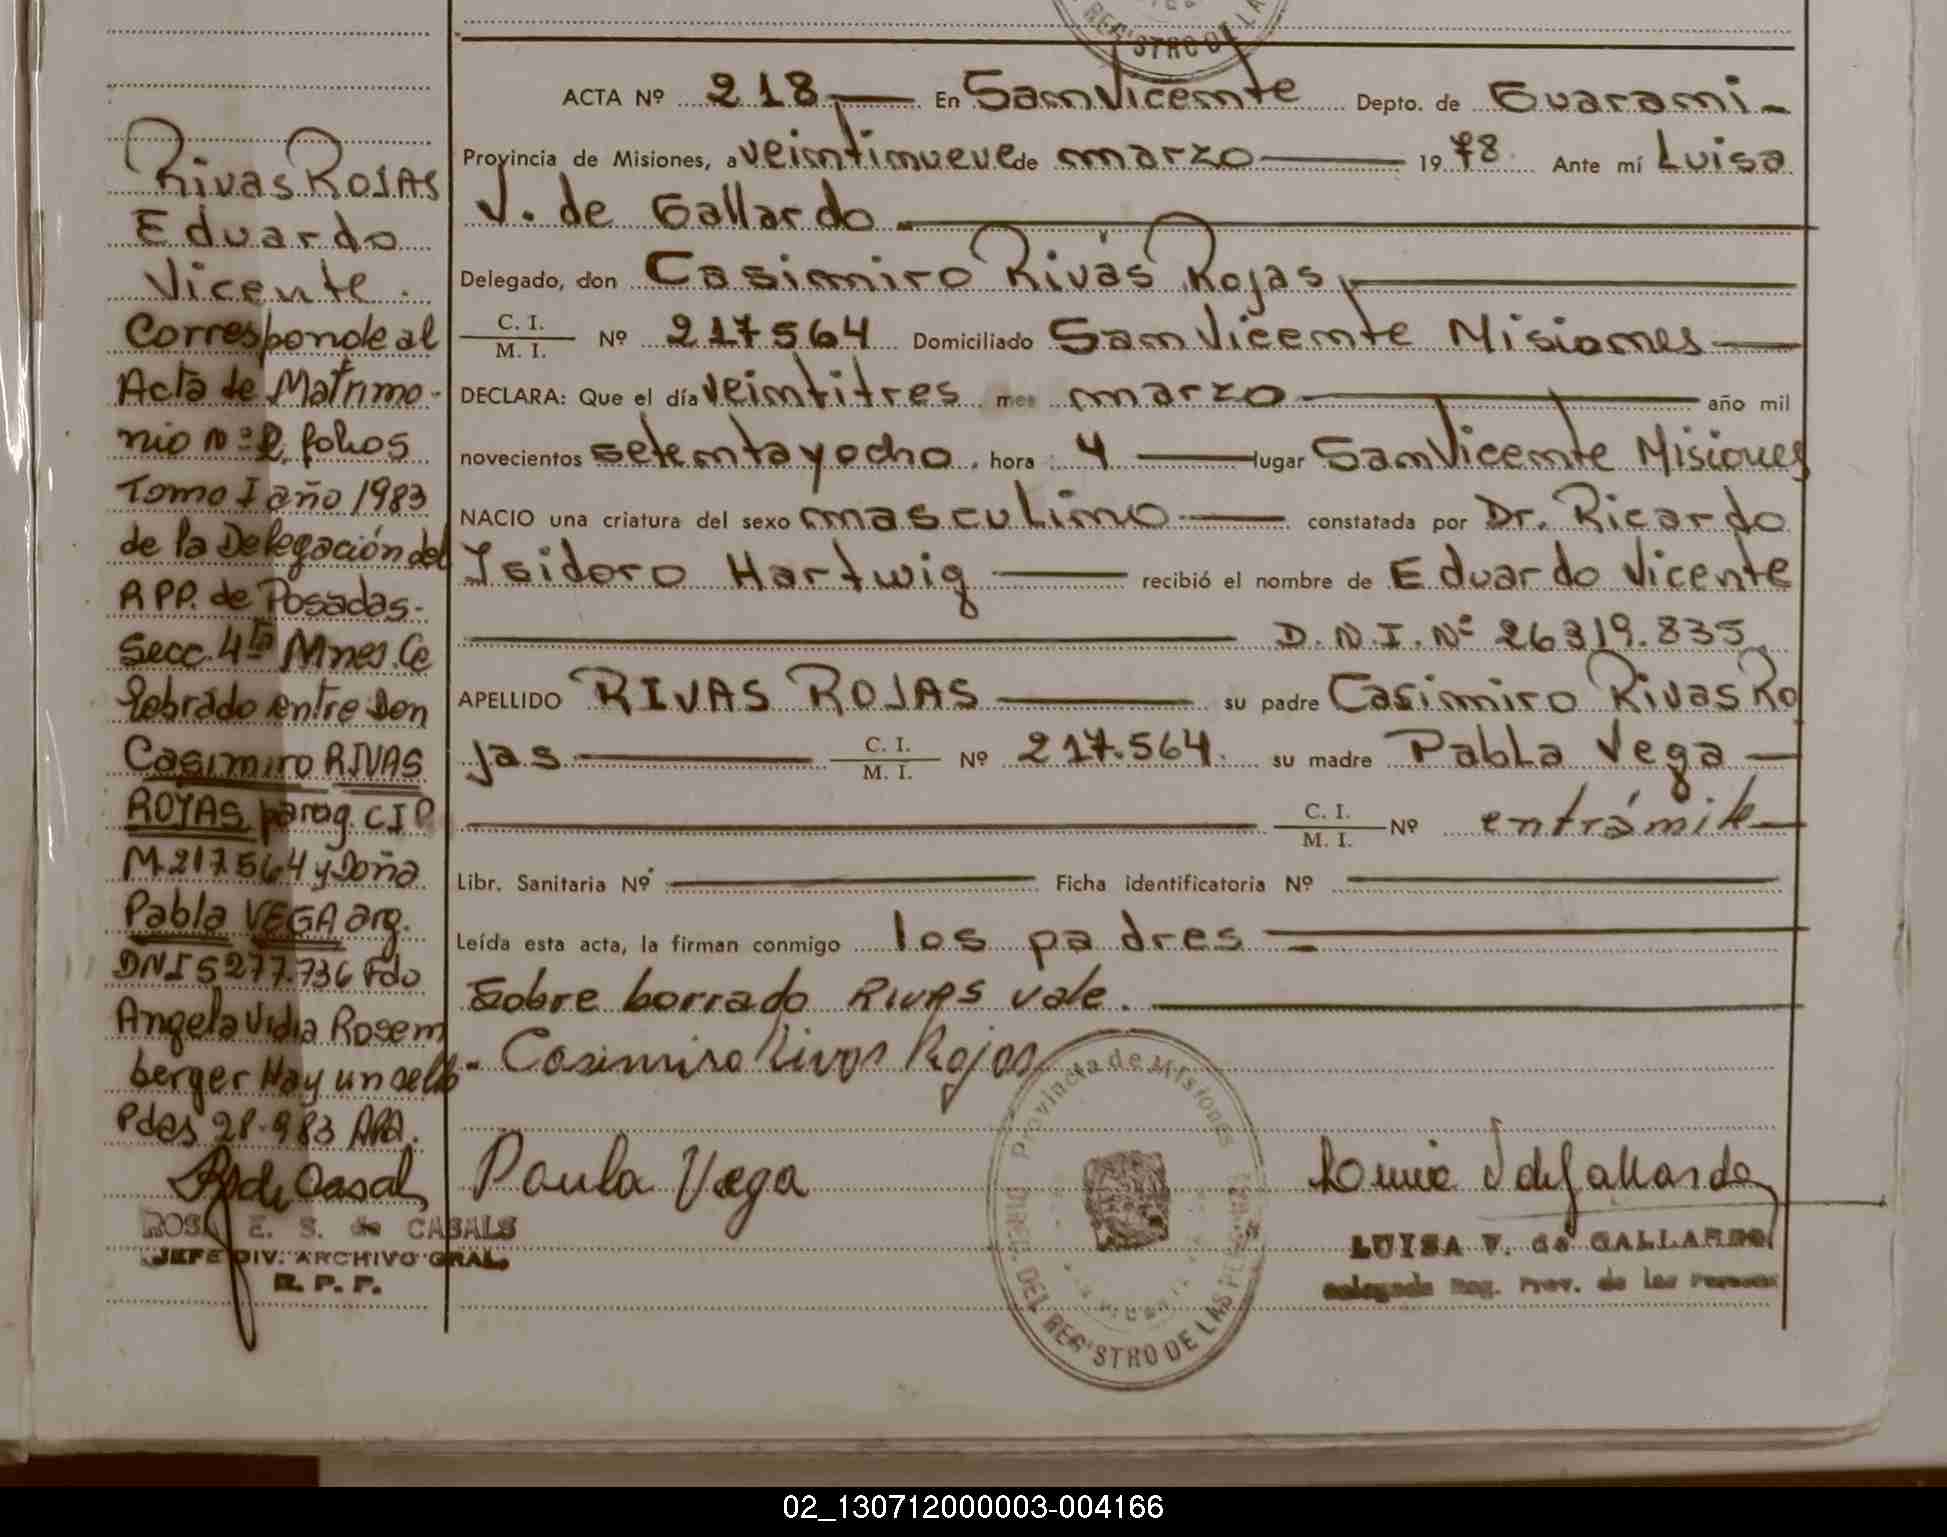 REGISTRO DE LA
ACTA Nº 218 En San Vicente Depto. de Guarani
Provincia de Misiones, a veintinueve de marzo 1978. Ante mí Luisa
V. de Gallardo.
Delegado, don Casimiro Rivas Rojas,
C. I.
M. I.
Nº 217564 Domiciliado San Vicente Misiones
DECLARA: Que el día veintitres mes marzo año mil
novecientos setentayocho, hora 4 lugar San Vicente Misiones
NACIO una criatura del sexo masculino constatada por Dr. Ricardo
Isidoro Hartwig recibió el nombre de Eduardo Vicente
D.N.I. Nº 26319.835
APELLIDO RIVAS ROJAS su padre Casimiro Rivas Ro
jas C. I. M. I. Nº 217.564. su madre Pabla Vega
C. I. M. I. Nº entrámite
Libr. Sanitaria Nº Ficha identificatoria Nº
Leída esta acta, la firman conmigo los padres
Sobre borrado RIVAS vale.
Casimiro Rivas Rojas
Paula Vega
Provincia de Misiones
DEL REGISTRO DE LAS PE
LUISA V. de GALLARDO
Delegada Reg. Prov. de las Personas
Rivas ROJAS
Eduardo
Vicente.
Corresponde al
Acta de Matrimo-
nio nº 2, folios
Tomo I año 1983
de la Delegación del
RPP. de Posadas-
Secc. 4ta Mnes. Ce
lebrado entre Don
Casimiro RIVAS
ROJAS parag. CIP
M. 217564 y Doña
Pabla VEGA arg.
DNI 5277.736 Fdo
Angela Vidia Rosem
berger Hay un sello
Pdas 28-983
de Casals
ROSA E. S. de CASALS
JEFE DIV. ARCHIVO GRAL.
R. P. P.
02_130712000003-004166